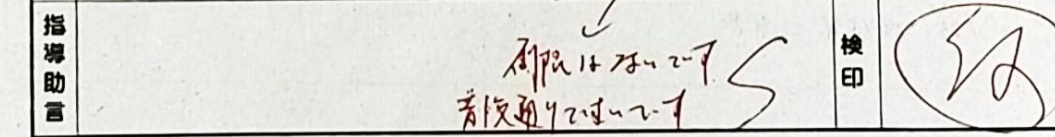 指導助言
制限はないです
普段通りではいいです
検印